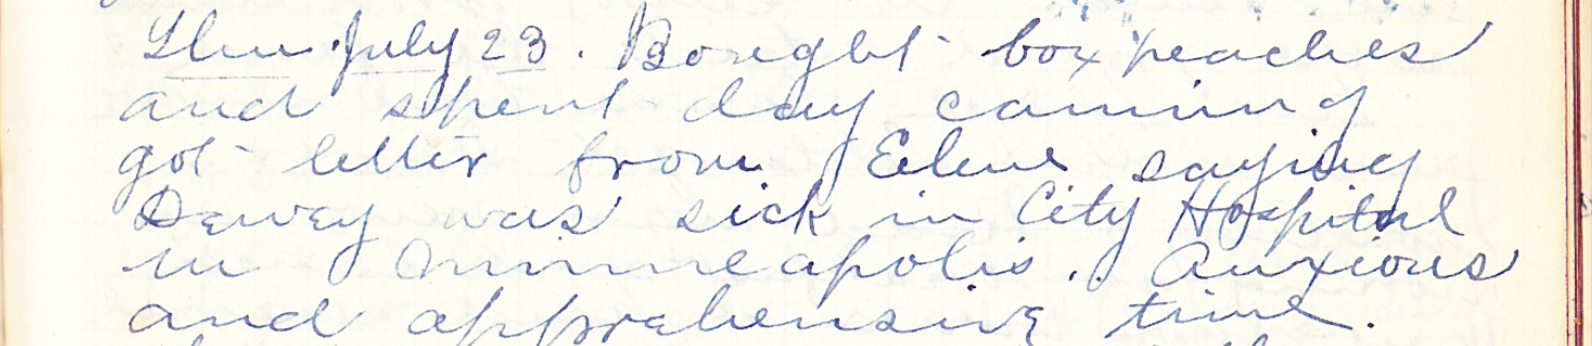 Thu. July 23. Bought box peaches
and spent day canning
got letter from Eilene saying
Dewey was sick in City Hospital
in Minneapolis. Anxious
and apprehensive time.